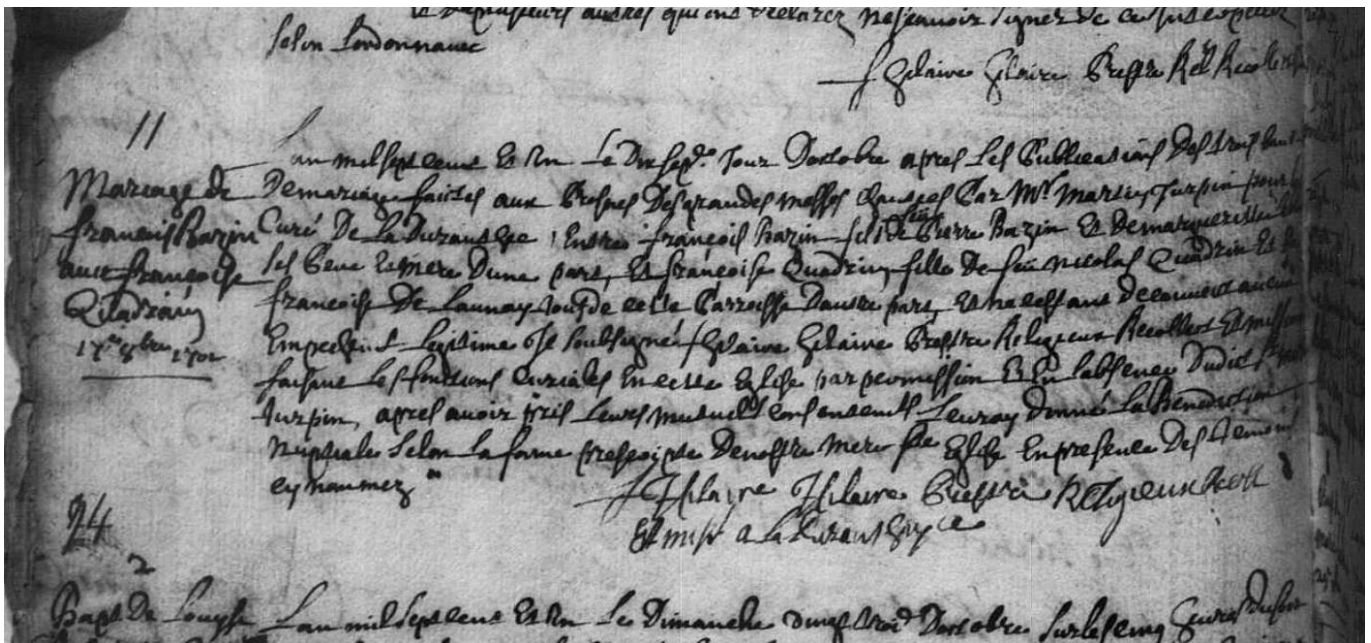 et de plusieurs autres qui ont declarez ne scavoir signer de ce interpellez
selon Lordonnance
f hilaire hilaire Prestre Rel Recollect
11
Mariage de
francois Bazin
avec francoise
Quadrain
17e 8bre 1701
Lan mil sept cent Et Un Le Dix sepe. Jour Doctobre apres Les Publications Des trois bans
De mariage faittes aux Prosnes Des grandes messes Par Mr. Martin Turpin pour lors
Curé De La Durantaye, Entre françois Bazin fils de Pierre Bazin Et De margueritte
ses Pere Et mere Dune part, Et françoise Quadrin fille De feu nicolas Quadrin Et De
francoise De Launay tous de cette Parroisse Dautre part, Et ne cestant decouvert aucun
Empechent Legitime Je soubsigné f hilaire hilaire Prestre Religieux Recollect Et mission
faisant Les fonctions curiales En cette Eglise par permission Et En Labsence Dudict Sr
Turpin, apres avoir pris Leurs mutuels consentements Leur ay donné La Benediction
Nuptiale Selon La forme prescripte De nostre mere Ste Eglise En presence Des temoins
cy nommez
f hilaire hilaire Prestre Religieux Recoll
Et miss a La Durantaye
24
2
Bapt De Louyse
Lan mil sept cent Et Un Le Dimanche Doctobre sur les cinq heures du soir